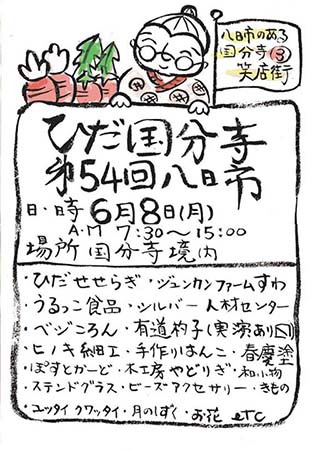 八日市のある
国分寺③
笑店街
ひだ国分寺
第54回八日市
日・時 6月8日(月)
A・M 7:30〜15:00
場所 国分寺境内
・ひだせせらぎ・ジュンカンファームすわ
・うるっこ食品・シルバー人材センター
・ベジころん・有道杓子(実演あり〼)
・ヒノキ細工・手作りはんこ・春慶塗
・ぽすとかーど・木工房やどりぎ・和小物
・ステンドグラス・ビーズアクセサリー・きもの
・ユッタイクワッタイ・月のしずく・お花 etc